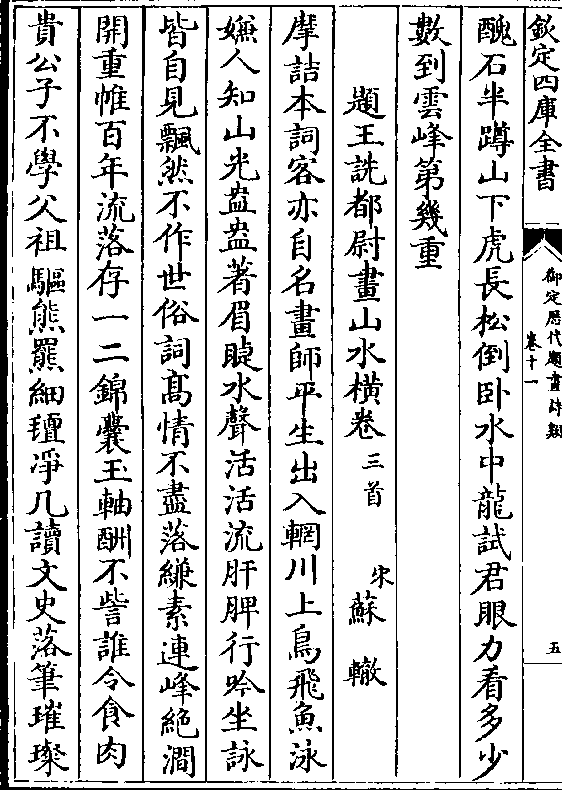 欽定四庫全書
御定歷代題畫詩類
卷十一
五
醜石半蹲山下虎長松倒卧水中龍試君眼力看多少
數到雲峰第幾重
題王詵都尉畫山水橫卷三首 宋蘇轍
摩詰本詞客亦自名畫師平生出入輞川上鳥飛魚泳
嫌人知山光盎盎著眉睫水聲活活流肝脾行吟坐詠
皆自見飄然不作世俗詞髙情不盡落縑素連峰絶澗
開重帷百年流落存一二錦囊玉軸酬不訾誰令食肉
貴公子不學父祖驅熊羆細氊淨几讀文史落筆璀璨